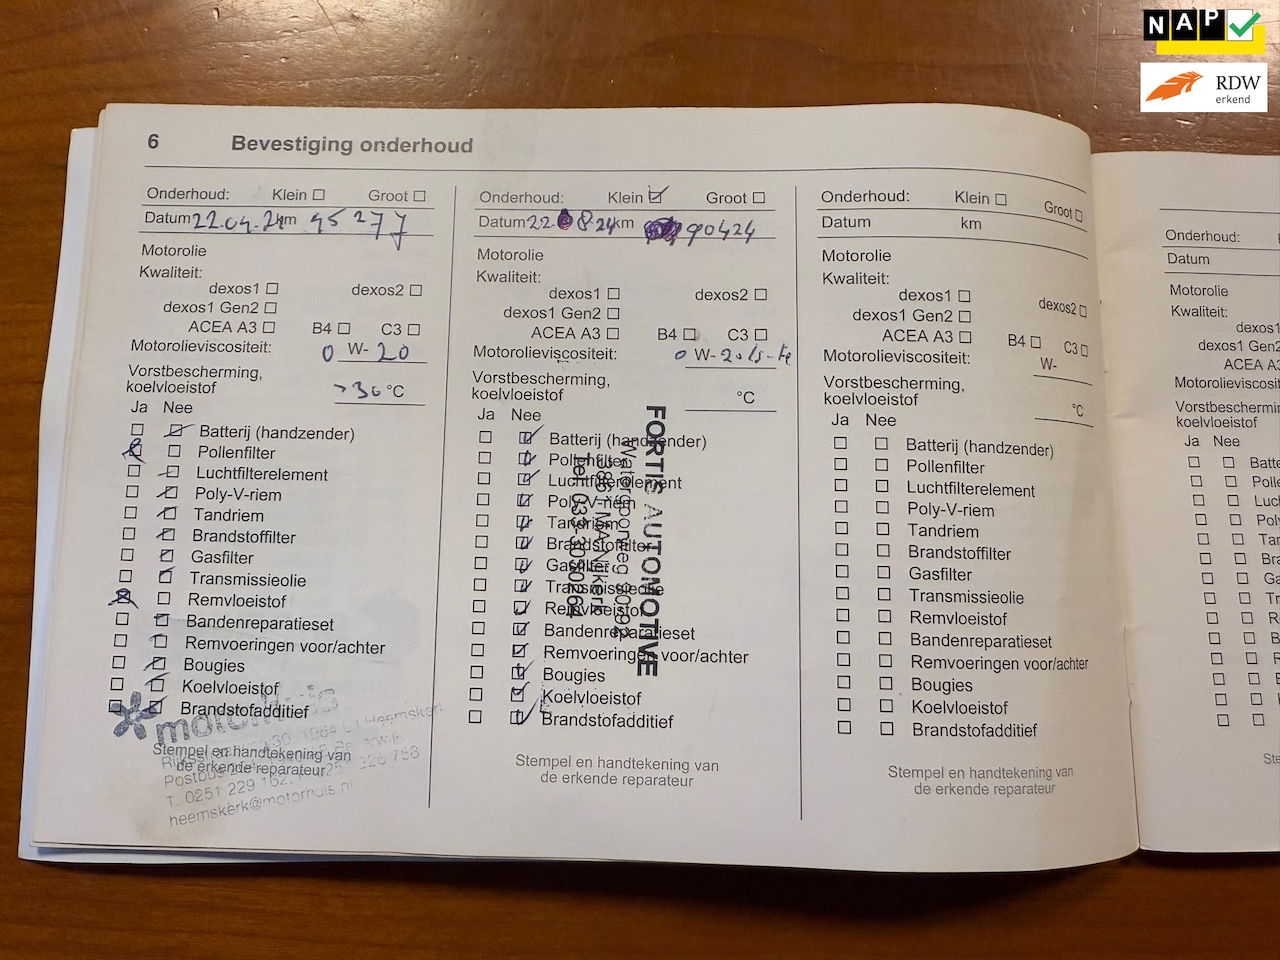 NAP
RDW
erkend
6 Bevestiging onderhoud
Onderhoud: Klein Groot
Datum 22.04.24 km 45277
Motorolie
Kwaliteit:
dexos1 dexos2
dexos1 Gen2
ACEA A3 B4 C3
Motorolieviscositeit: 0 W- 20
Vorstbescherming,
koelvloeistof >36 °C
Ja Nee
Batterij (handzender)
Pollenfilter
Luchtfilterelement
Poly-V-riem
Tandriem
Brandstoffilter
Gasfilter
Transmissieolie
Remvloeistof
Bandenreparatieset
Remvoeringen voor/achter
Bougies
Koelvloeistof
Brandstofadditief
motorhuis
Stempel en handtekening van
de erkende reparateur
T. 0251 229 162
heemskerk@motorhuis.nl
Onderhoud: Klein Groot
Datum 22. 8 24 km 90424
Motorolie
Kwaliteit:
dexos1 dexos2
dexos1 Gen2
ACEA A3 B4 C3
Motorolieviscositeit: 0 W- 20
Vorstbescherming,
koelvloeistof °C
Ja Nee
Batterij (handzender)
Pollenfilter
Luchtfilterelement
Poly-V-riem
Tandriem
Brandstoffilter
Gasfilter
Transmissieolie
Remvloeistof
Bandenreparatieset
Remvoeringen voor/achter
Bougies
Koelvloeistof
Brandstofadditief
FORTIS AUTOMOTIVE
Tel. 033-3030264
Stempel en handtekening van
de erkende reparateur
Onderhoud: Klein Groot
Datum km
Motorolie
Kwaliteit:
dexos1 dexos2
dexos1 Gen2
ACEA A3 B4 C3
Motorolieviscositeit: W-
Vorstbescherming,
koelvloeistof °C
Ja Nee
Batterij (handzender)
Pollenfilter
Luchtfilterelement
Poly-V-riem
Tandriem
Brandstoffilter
Gasfilter
Transmissieolie
Remvloeistof
Bandenreparatieset
Remvoeringen voor/achter
Bougies
Koelvloeistof
Brandstofadditief
Stempel en handtekening van
de erkende reparateur
Onderhoud:
Datum
Motorolie
Kwaliteit:
dexos1
dexos1 Gen2
ACEA A3
Motorolieviscosit
Vorstbeschermin
koelvloeistof
Ja Nee
Batte
Polle
Luch
Poly
Tan
Bra
Ga
Tr
R